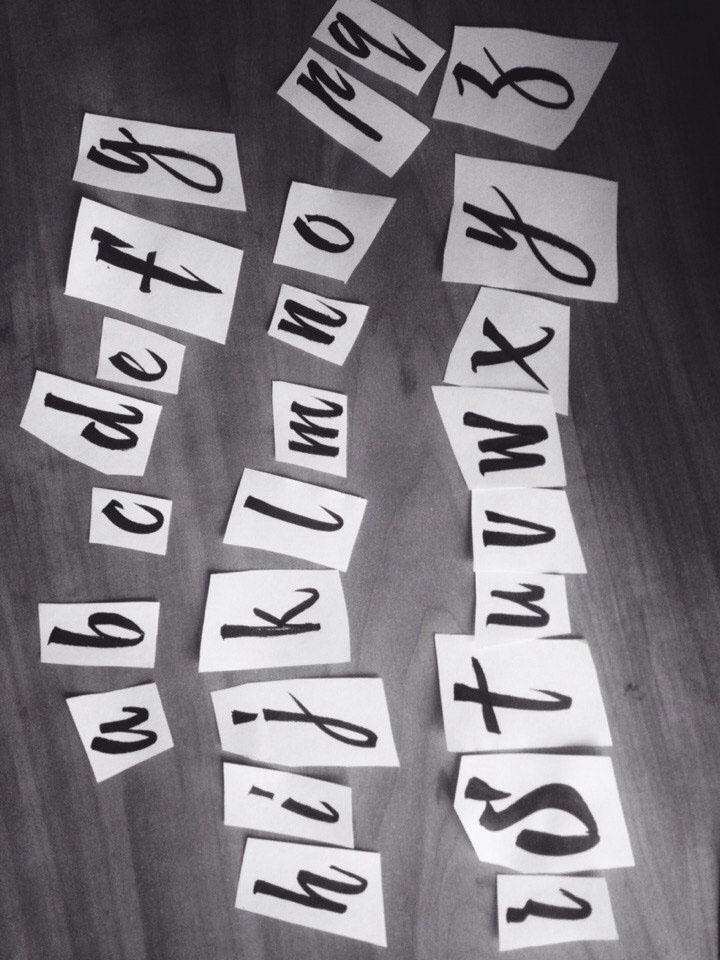 a b c d e f g
h i j k l m n o p q
r s t u v w x y z